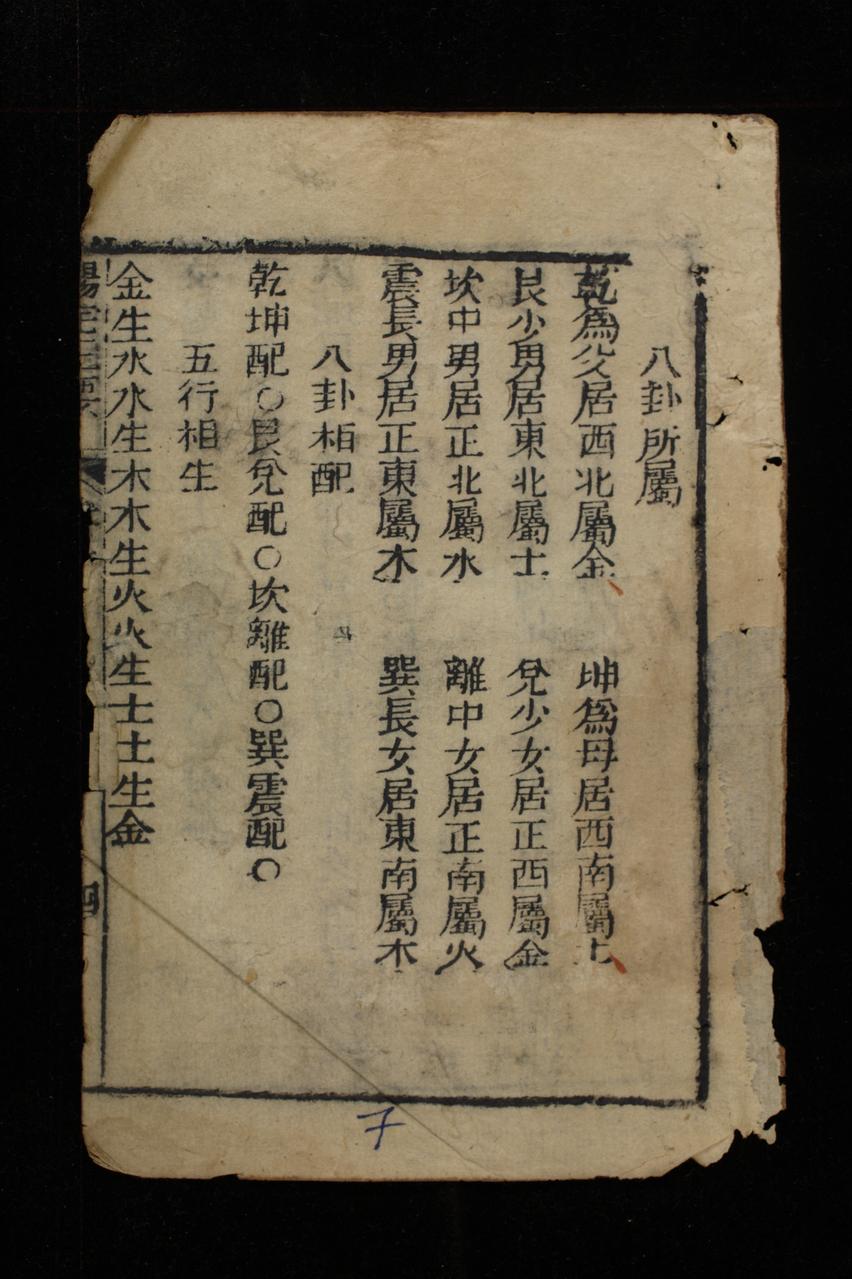 八卦所屬
乾爲父居西北屬金 坤爲母居西南屬土
艮少男居東北屬土 兌少女居正西屬金
坎中男居正北屬水 離中女居正南屬火
震長男居正東屬木 巽長女居東南屬木
八卦相配
乾坤配○艮兌配○坎離配○巽震配○
五行相生
金生水水生木木生火火生土土生金
陽宅
四
7